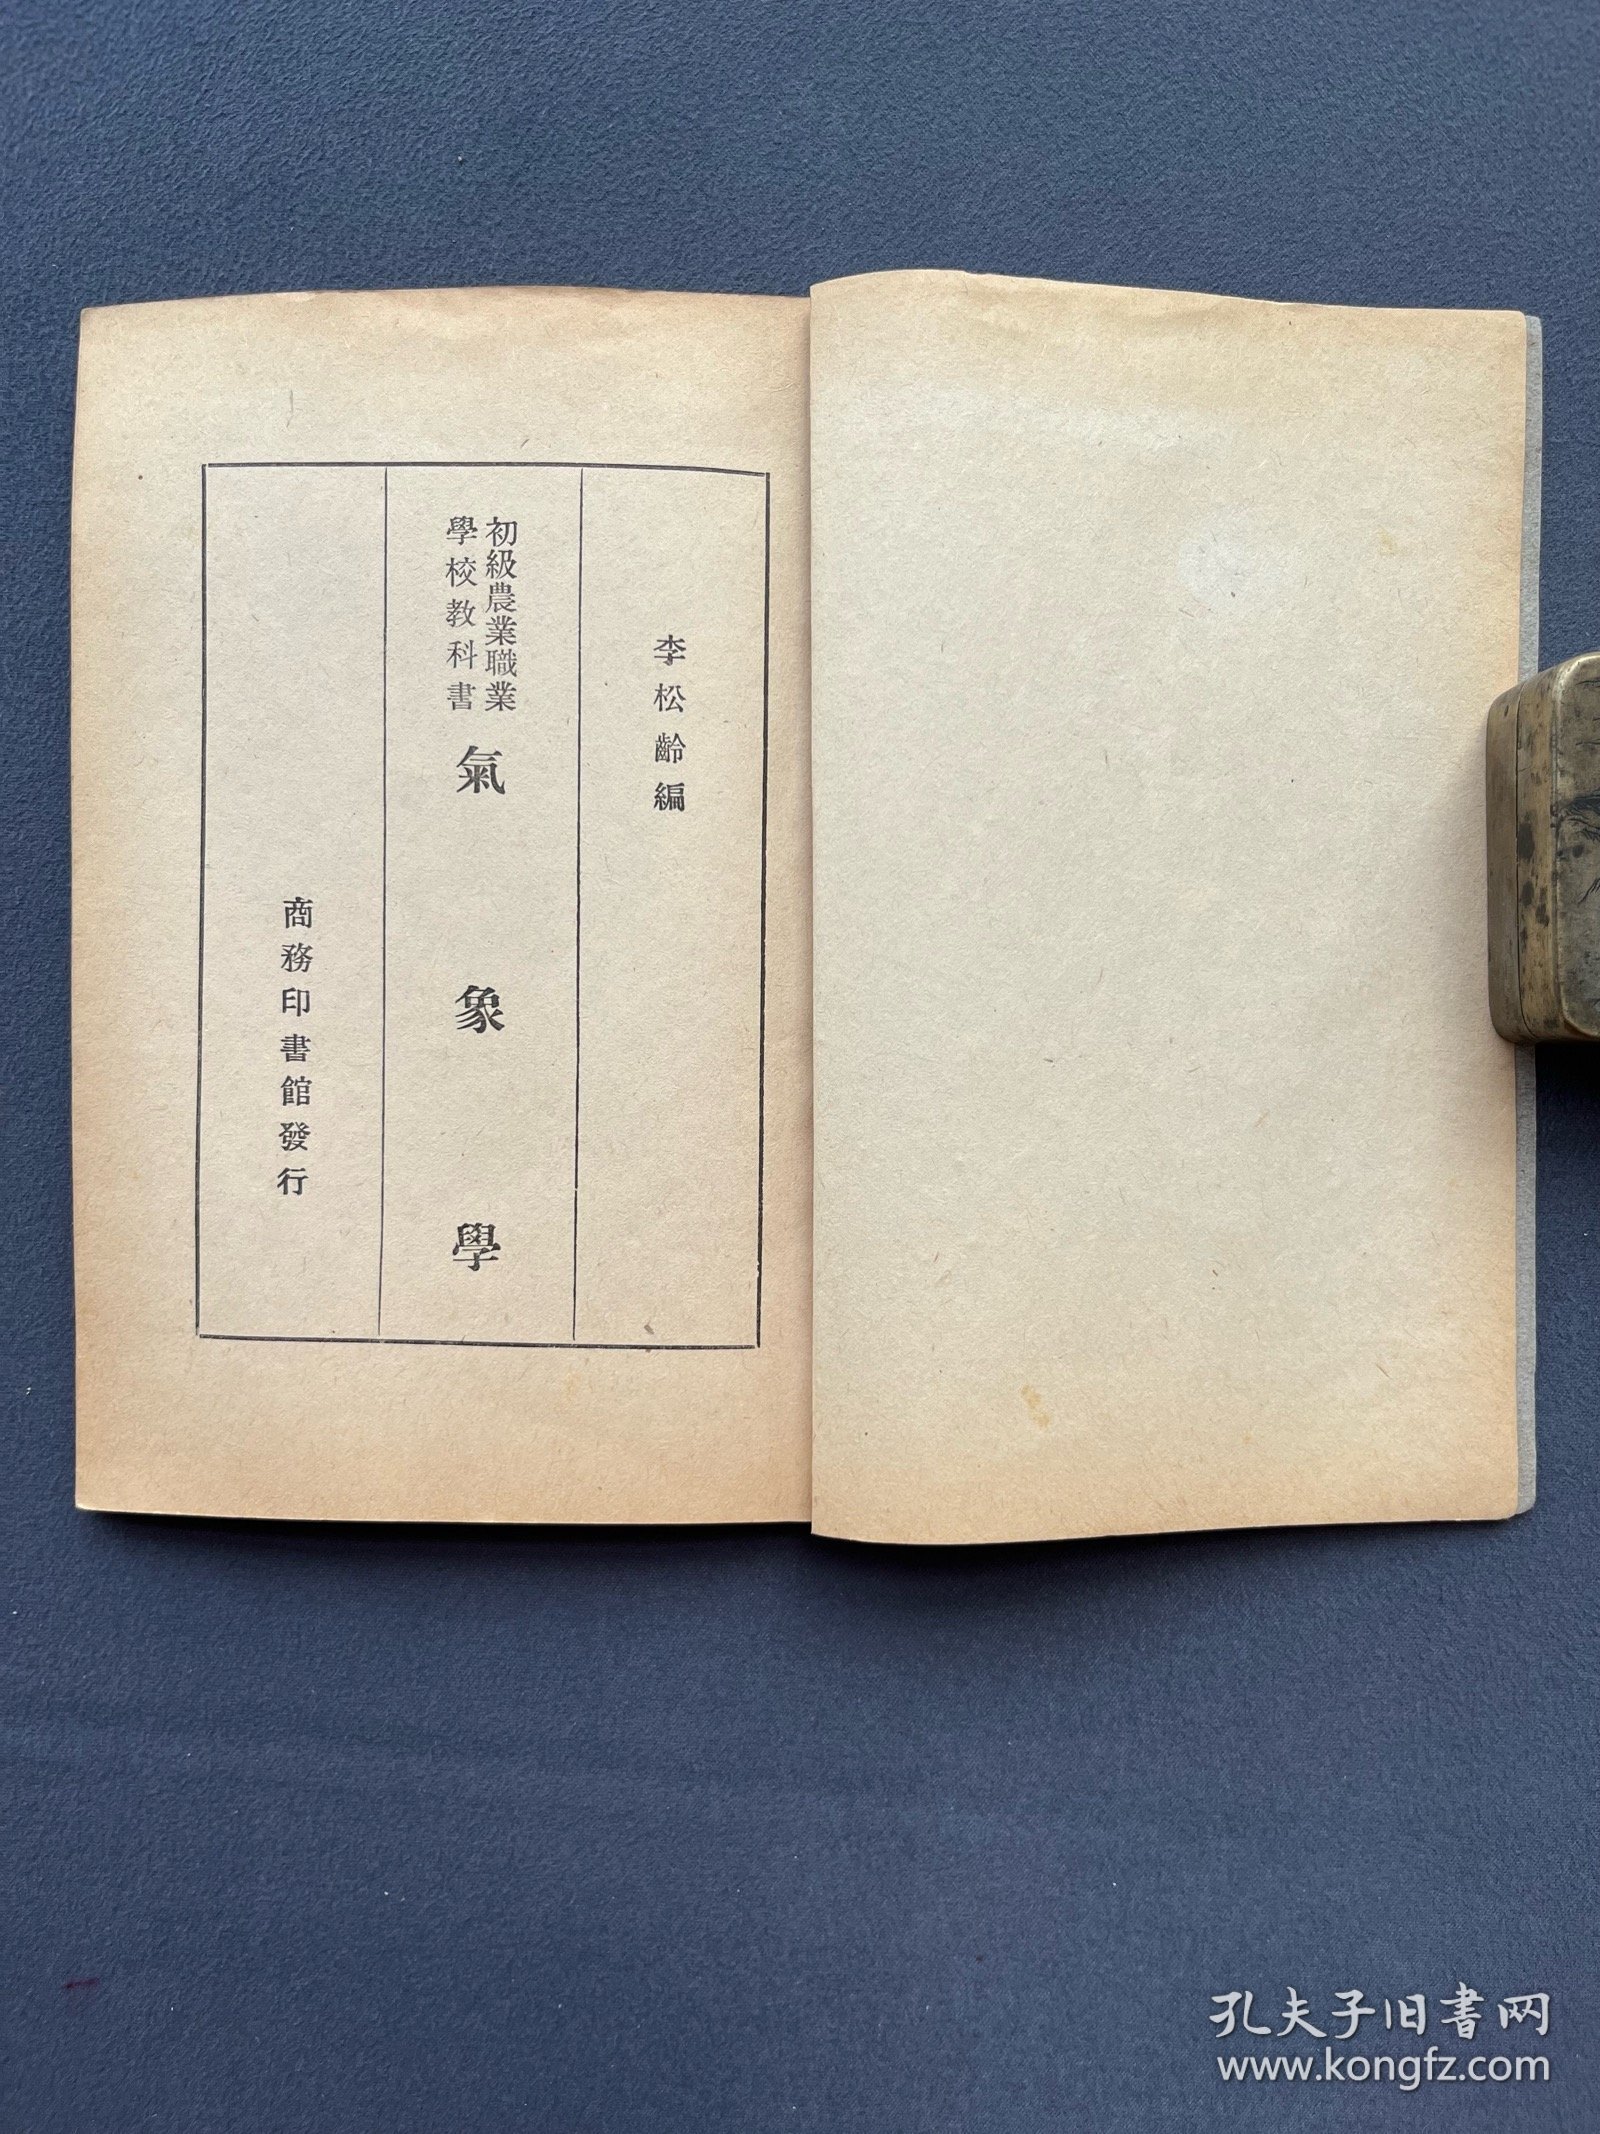 李松齡編
初級農業職業
學校教科書
氣象學
商務印書館發行
孔夫子旧书网
www.kongfz.com